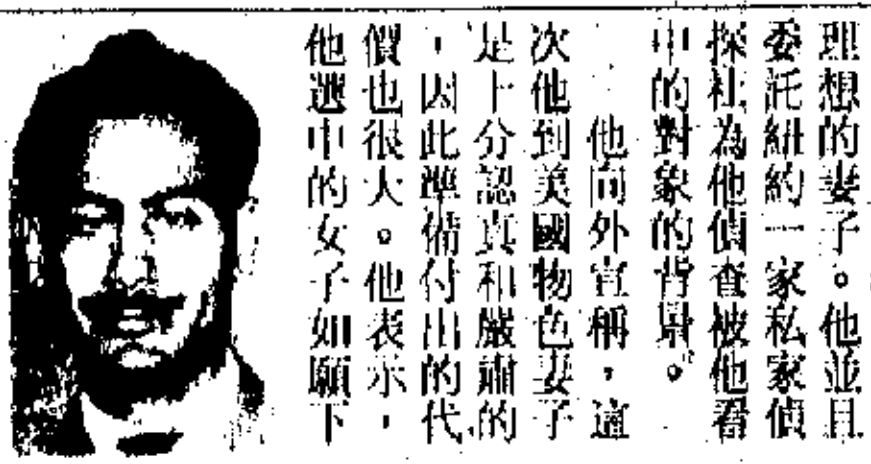 理想的妻子。他並且
委託紐約一家私家偵
探社為他偵查被他看
中的對象的背景。
他向外宣稱,這
次他到美國物色妻子
是十分認真和嚴肅的
,因此準備付出的代
價也很大。他表示,
他選中的女子如願下